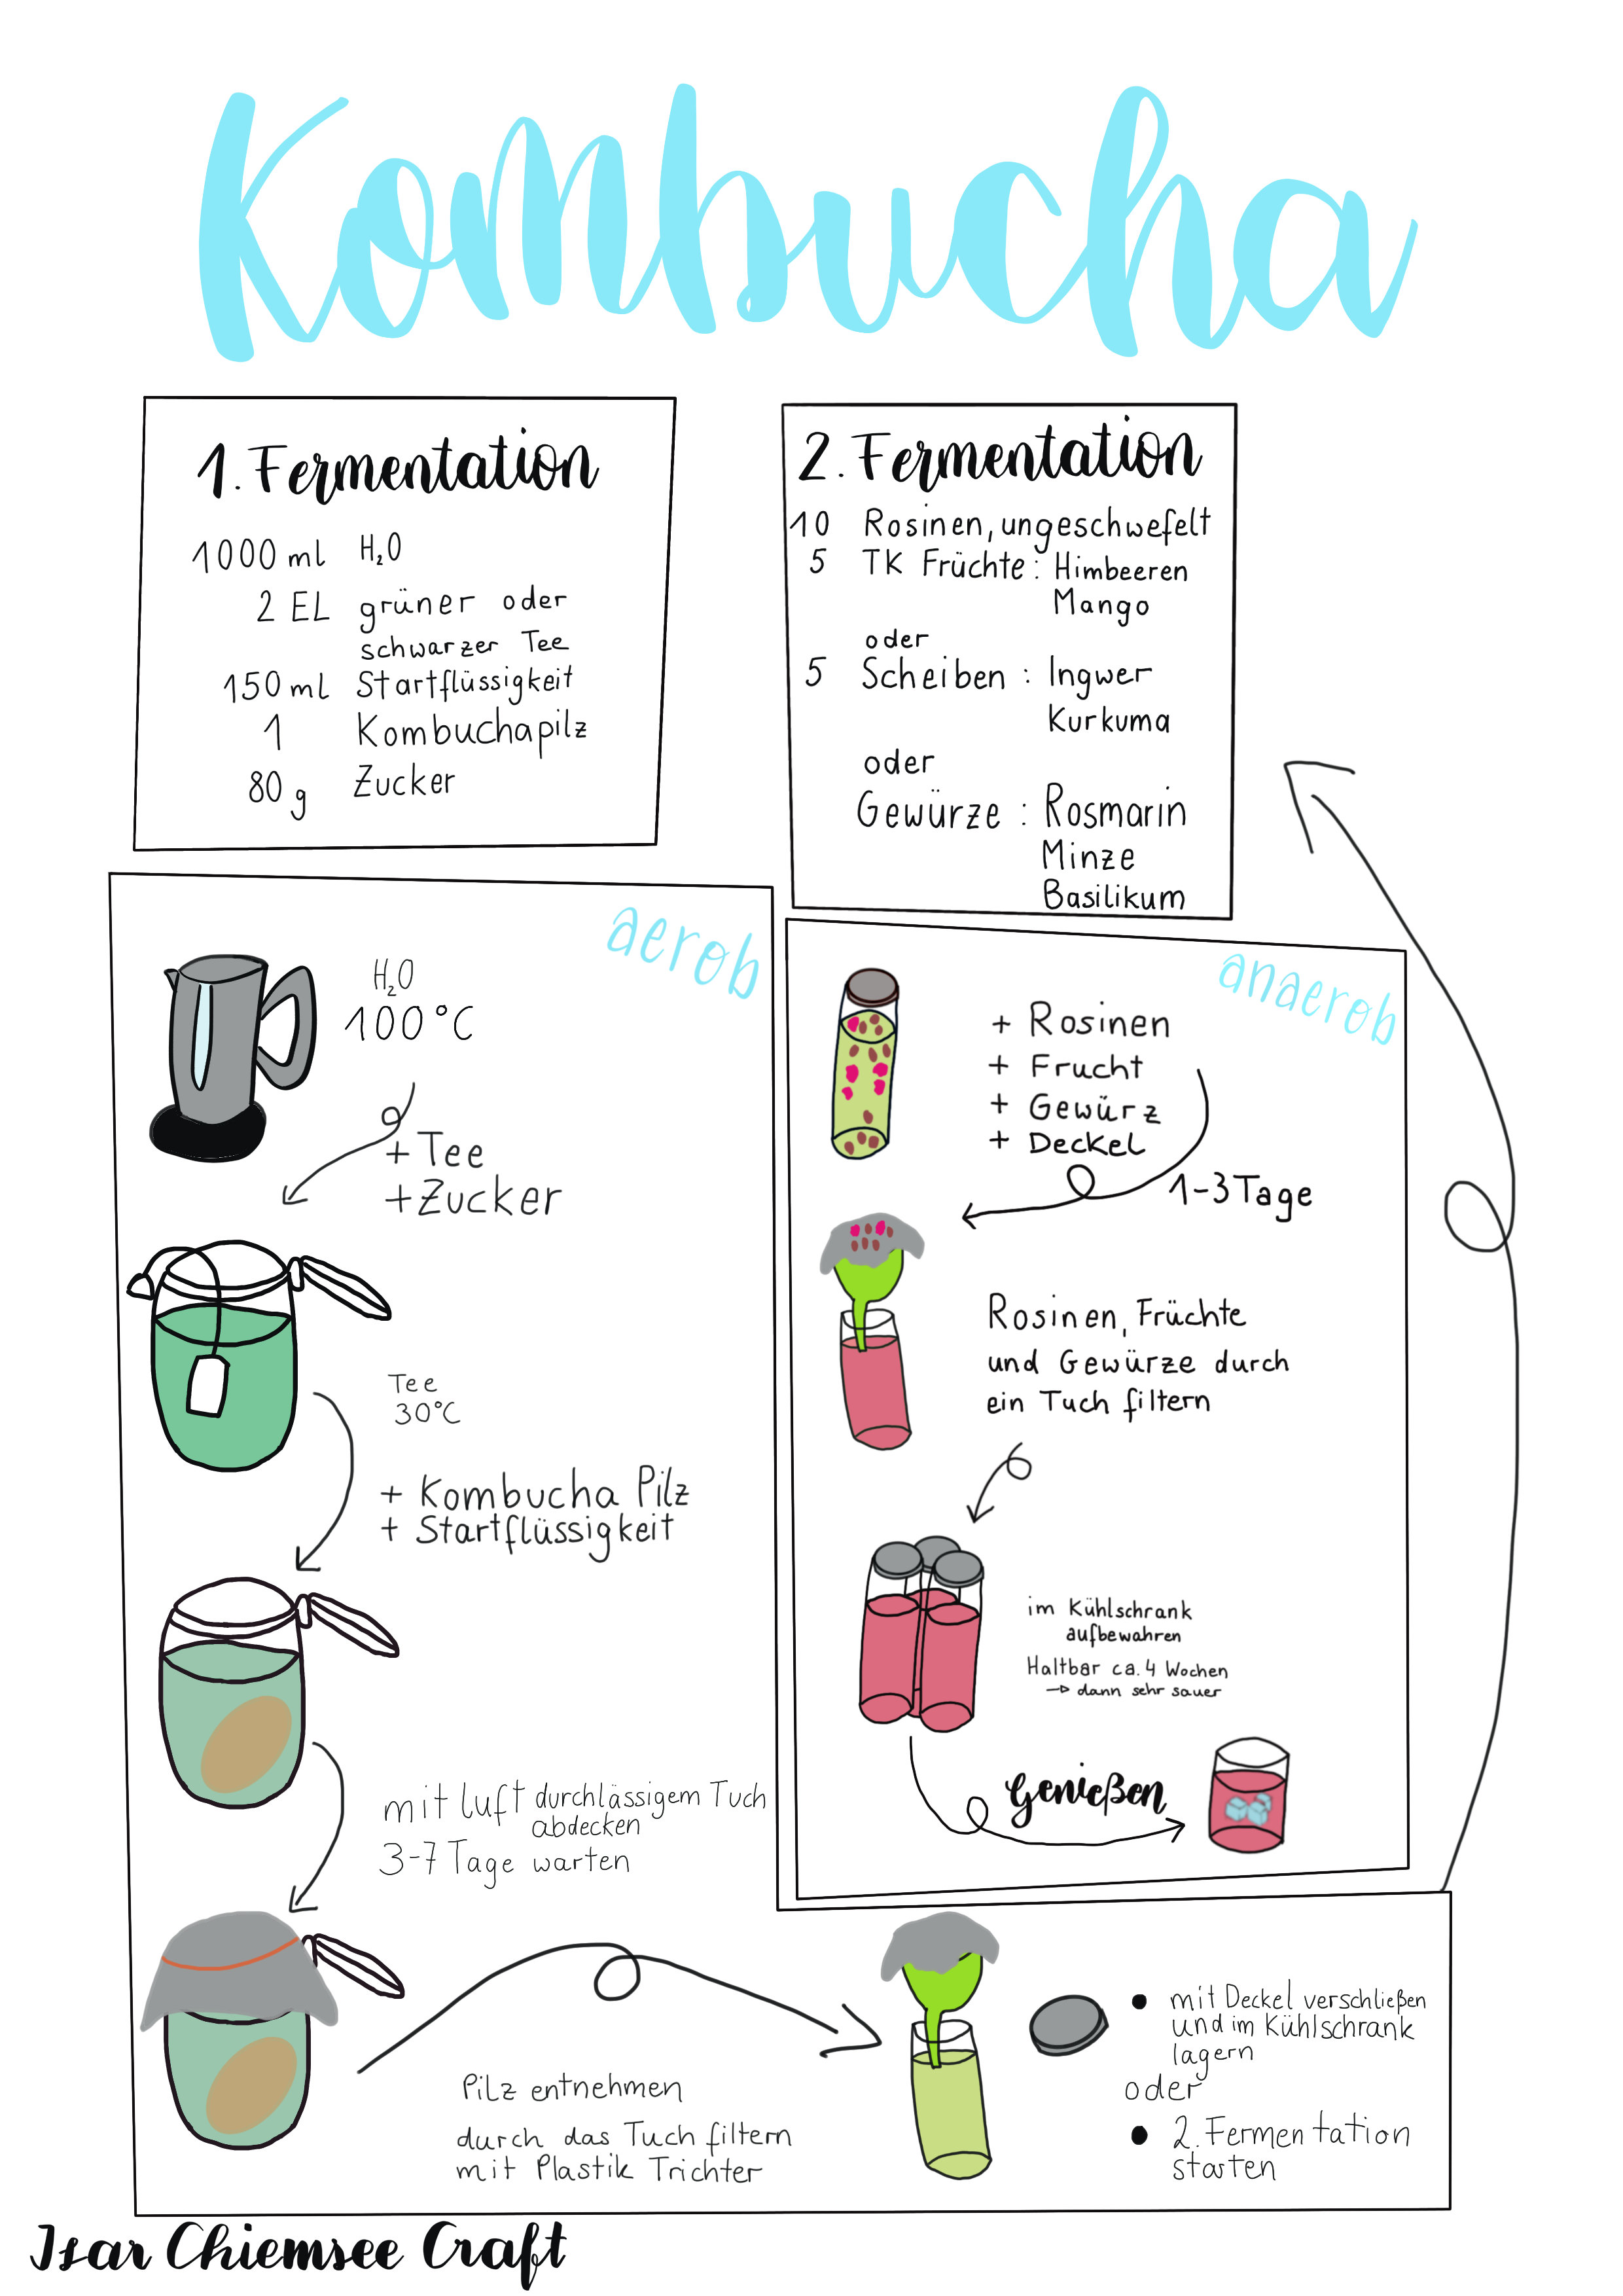 Kombucha
1. Fermentation
1000 ml H₂O
2 EL grüner oder
schwarzer Tee
150 ml Startflüssigkeit
1 Kombuchapilz
80 g Zucker
2. Fermentation
10 Rosinen, ungeschwefelt
5 TK Früchte: Himbeeren
Mango
oder
5 Scheiben: Ingwer
Kurkuma
oder
Gewürze: Rosmarin
Minze
Basilikum
aerob
H₂O
100°C
+ Tee
+ Zucker
Tee
30°C
+ Kombucha Pilz
+ Startflüssigkeit
mit luft durchlässigem Tuch
abdecken
3-7 Tage warten
Pilz entnehmen
durch das Tuch filtern
mit Plastik Trichter
• mit Deckel verschließen
und im Kühlschrank
lagern
oder
• 2. Fermentation
starten
anaerob
+ Rosinen
+ Frucht
+ Gewürz
+ Deckel
1-3 Tage
Rosinen, Früchte
und Gewürze durch
ein Tuch filtern
im Kühlschrank
aufbewahren
Haltbar ca. 4 Wochen
→ dann sehr sauer
Genießen
Isar Chiemsee Craft